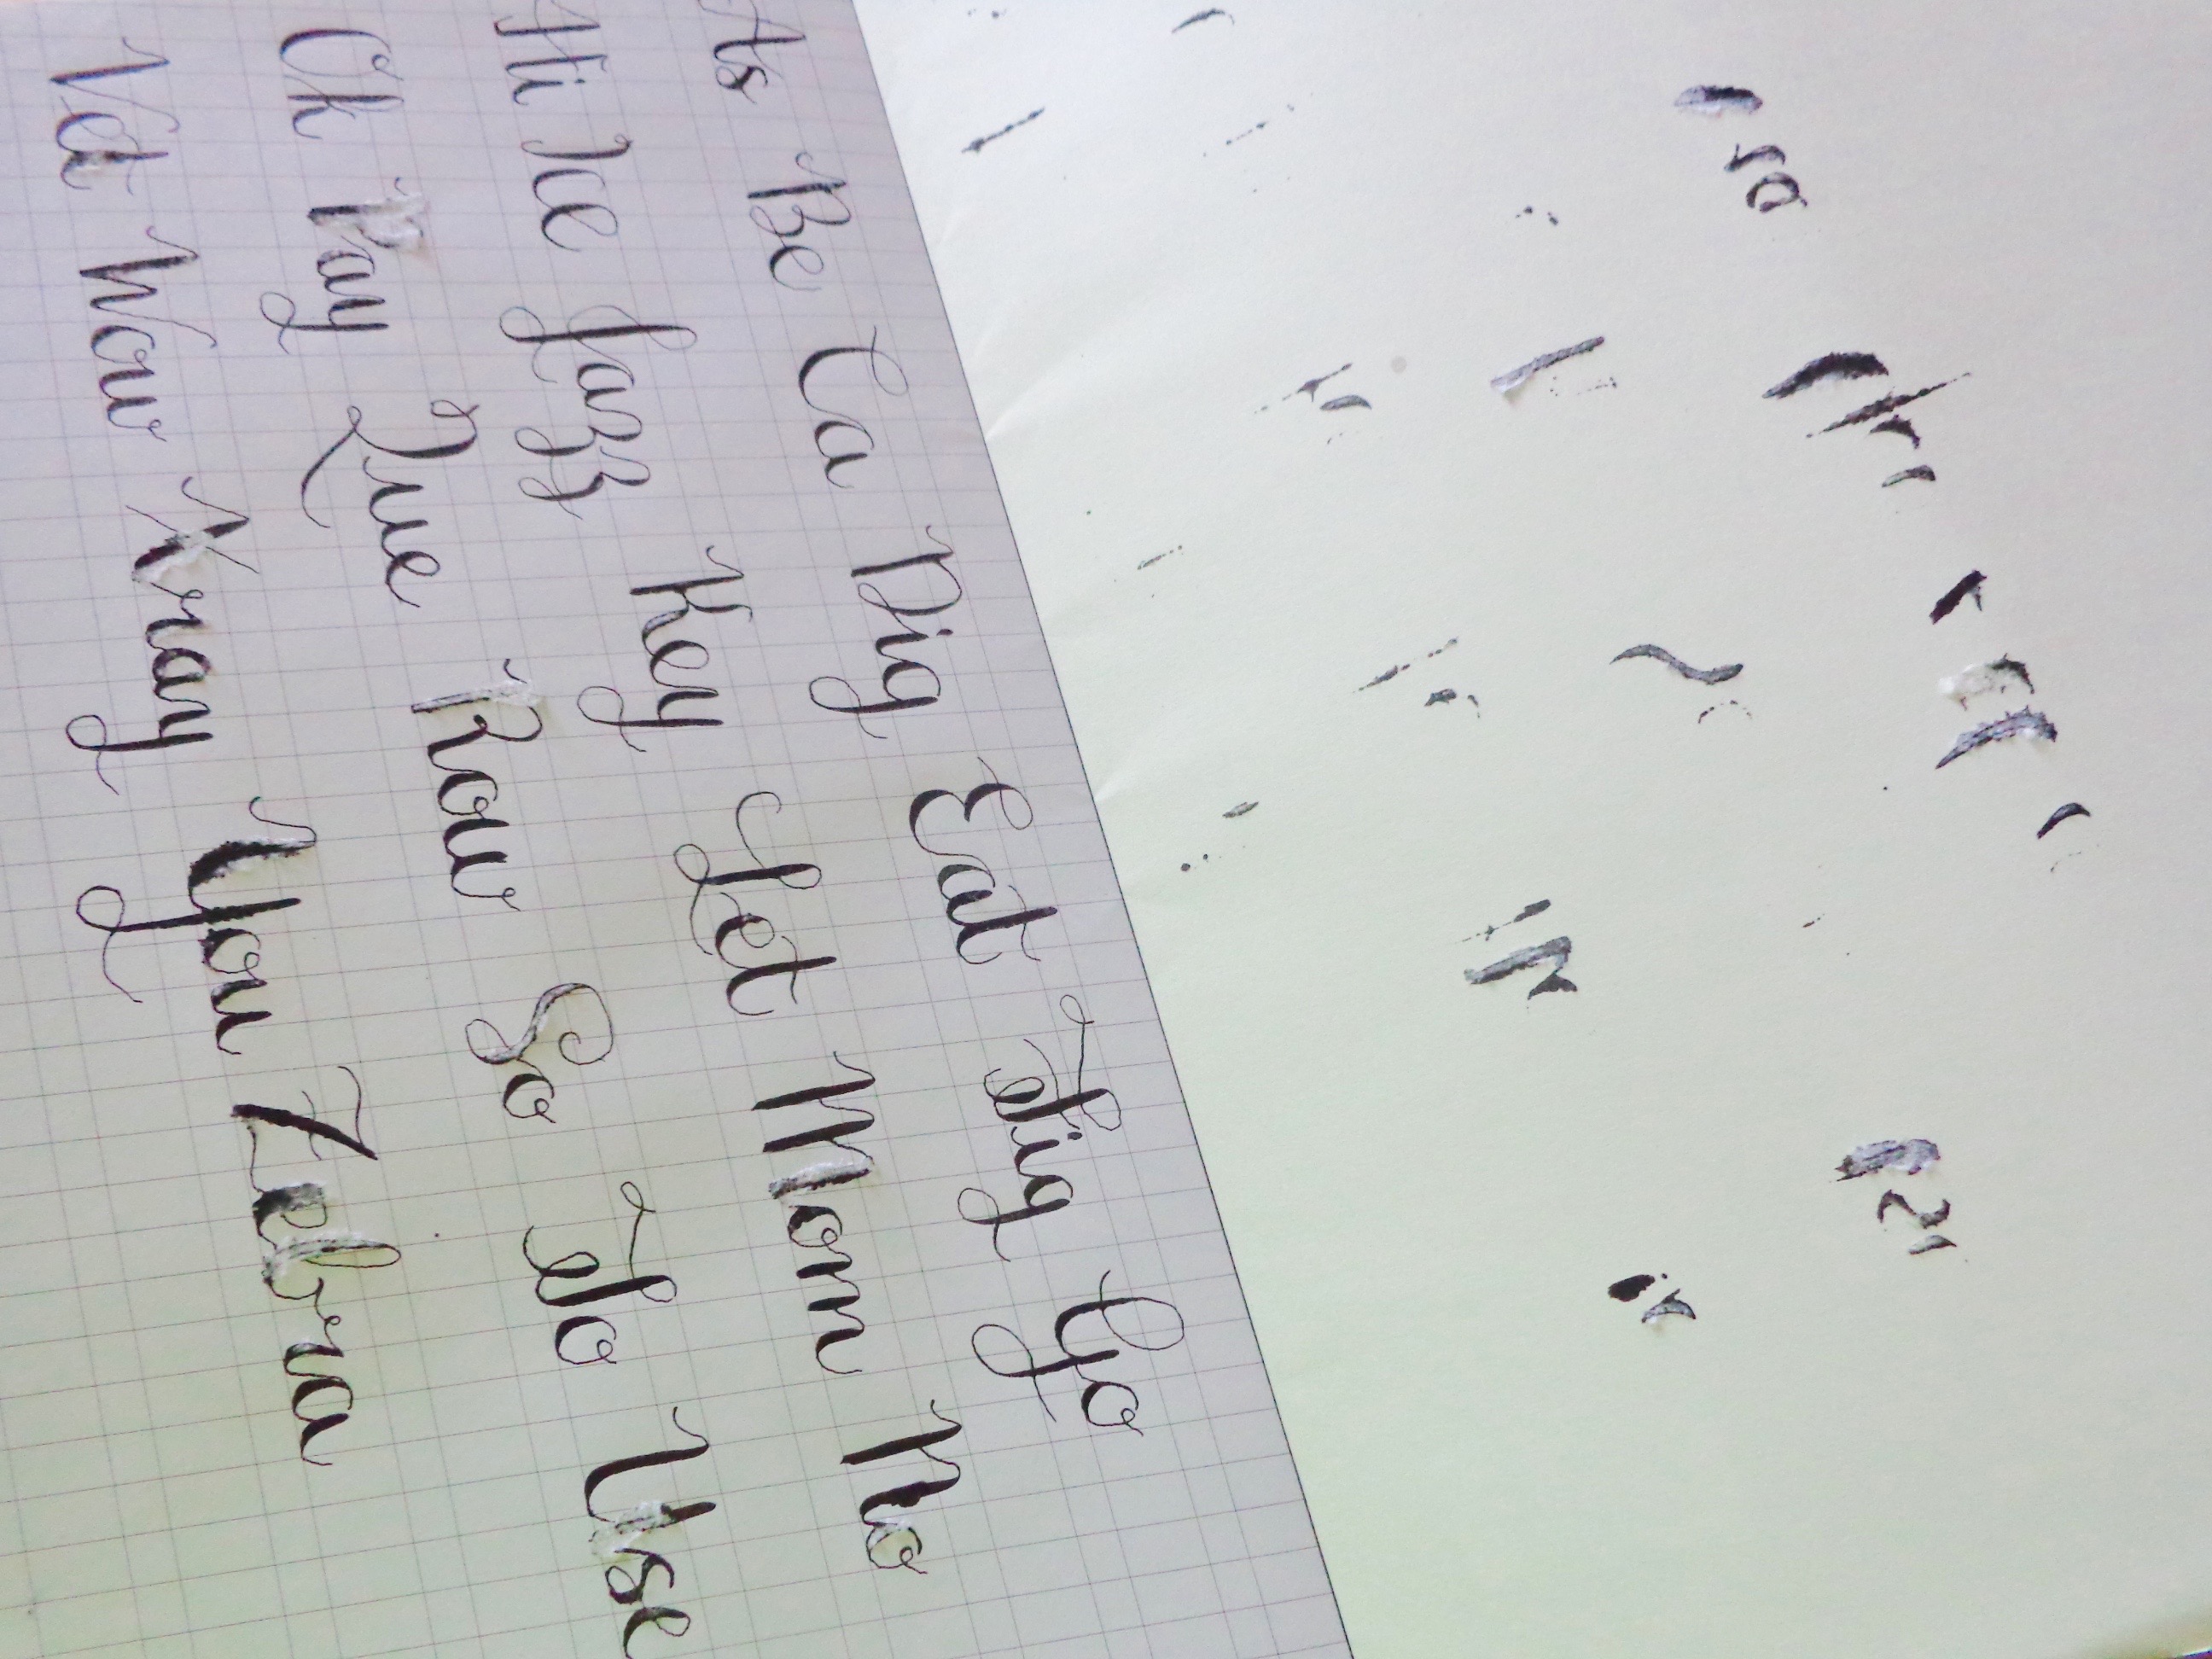 As Be Ca Dig Eat Fig Go
Hi Ice Jazz Key Let Mom No
Ok Pay Que Row So To Use
Vet Wow Xray You Zebra